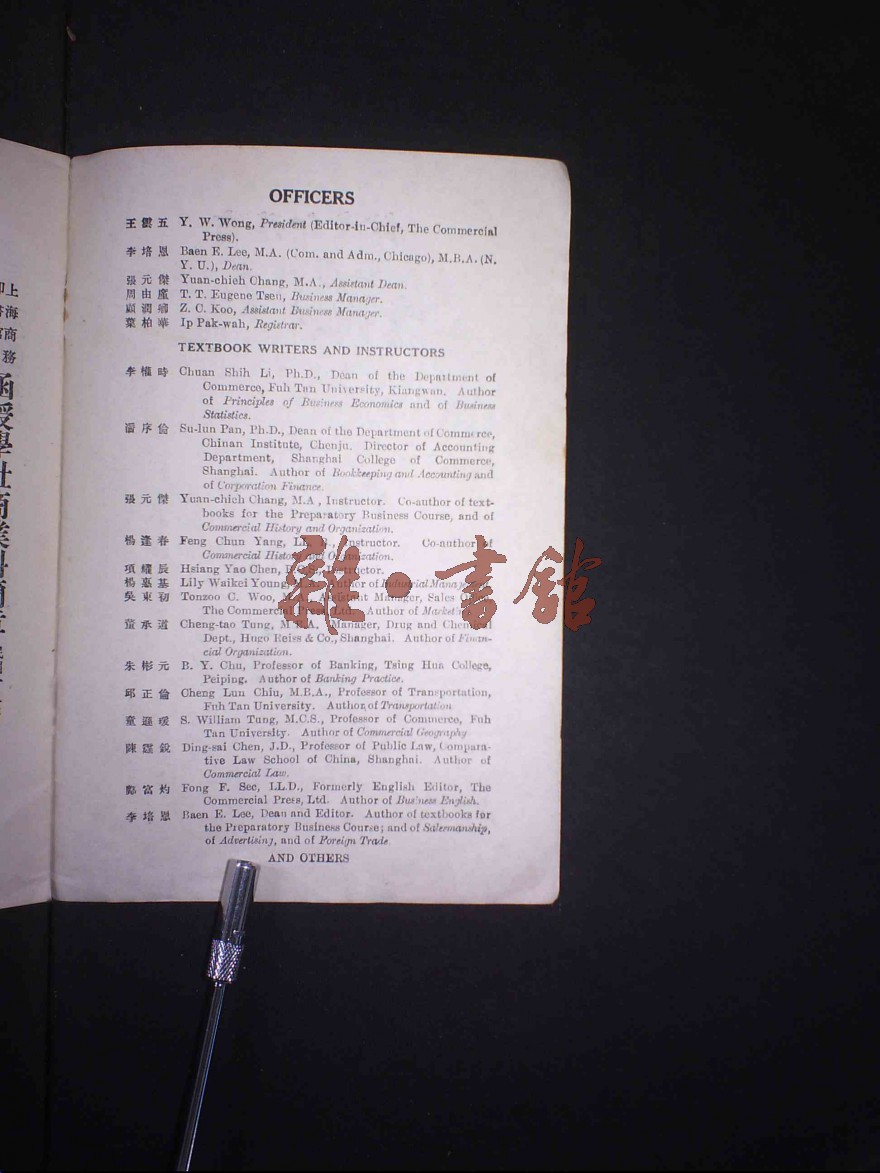 OFFICERS
王雲五 Y. W. Wong, President (Editor-in-Chief, The Commercial
Press).
李培恩 Baen E. Lee, M.A. (Com. and Adm., Chicago), M.B.A. (N.
Y. U.), Dean.
張元傑 Yuan-chieh Chang, M.A., Assistant Dean.
周由廑 T. T. Eugene Tseu, Business Manager.
顧潤卿 Z. C. Koo, Assistant Business Manager.
葉柏華 Ip Pak-wah, Registrar.
TEXTBOOK WRITERS AND INSTRUCTORS
李權時 Chuan Shih Li, Ph.D., Dean of the Department of
Commerce, Fuh Tan University, Kiangwan. Author
of Principles of Business Economics and of Business
Statistics.
潘序倫 Su-lun Pan, Ph.D., Dean of the Department of Commerce,
Chinan Institute, Chenju. Director of Accounting
Department, Shanghai College of Commerce,
Shanghai. Author of Bookkeeping and Accounting and
of Corporation Finance.
張元傑 Yuan-chieh Chang, M.A., Instructor. Co-author of text-
books for the Preparatory Business Course, and of
Commercial History and Organization.
楊逢春 Feng Chun Yang, Instructor. Co-author of
Commercial History and Organization.
項耀辰 Hsiang Yao Chen, Instructor.
楊惠基 Lily Waikei Young, Author of Industrial
吳東初 Tonzoo C. Woo, Assistant Manager, Sales
The Commercial Press, Ltd. Author of
董承道 Cheng-tao Tung, M.B.A., Manager, Drug and Chemical
Dept., Hugo Reiss & Co., Shanghai. Author of Finan-
cial Organization.
朱彬元 B. Y. Chu, Professor of Banking, Tsing Hua College,
Peiping. Author of Banking Practice.
邱正倫 Cheng Lun Chiu, M.B.A., Professor of Transportation,
Fuh Tan University. Author of Transportation
童遜瑗 S. William Tung, M.C.S., Professor of Commerce, Fuh
Tan University. Author of Commercial Geography
陳霆銳 Ding-sai Chen, J.D., Professor of Public Law, Compara-
tive Law School of China, Shanghai. Author of
Commercial Law.
鄺富灼 Fong F. Sec, LL.D., Formerly English Editor, The
Commercial Press, Ltd. Author of Business English.
李培恩 Baen E. Lee, Dean and Editor. Author of textbooks for
the Preparatory Business Course; and of Salesmanship,
of Advertising, and of Foreign Trade.
AND OTHERS
雜·書館